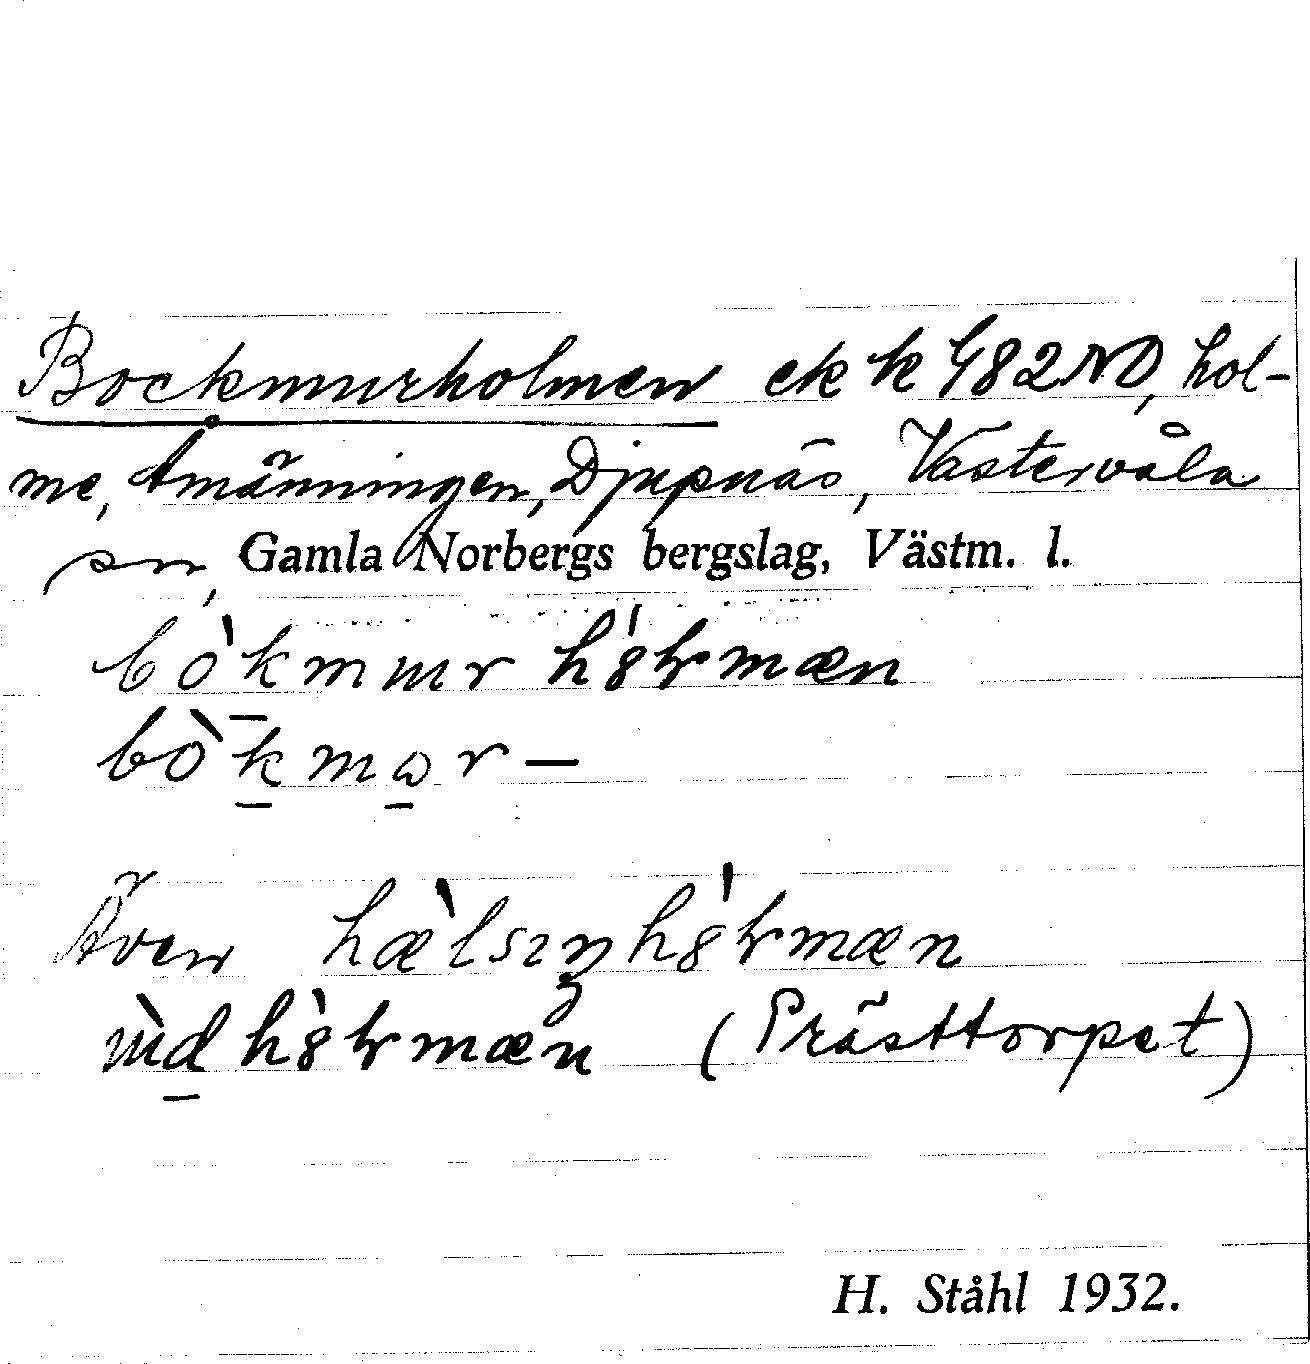 Bockmurholmen ek k 982 NO, hol-
me, Åmänningen, Djupnäs, Västervåla
sn, Gamla Norbergs bergslag, Västm. l.
bòkmur
bòkmor—
Även
(Prästtorpet)
H. Ståhl 1932.